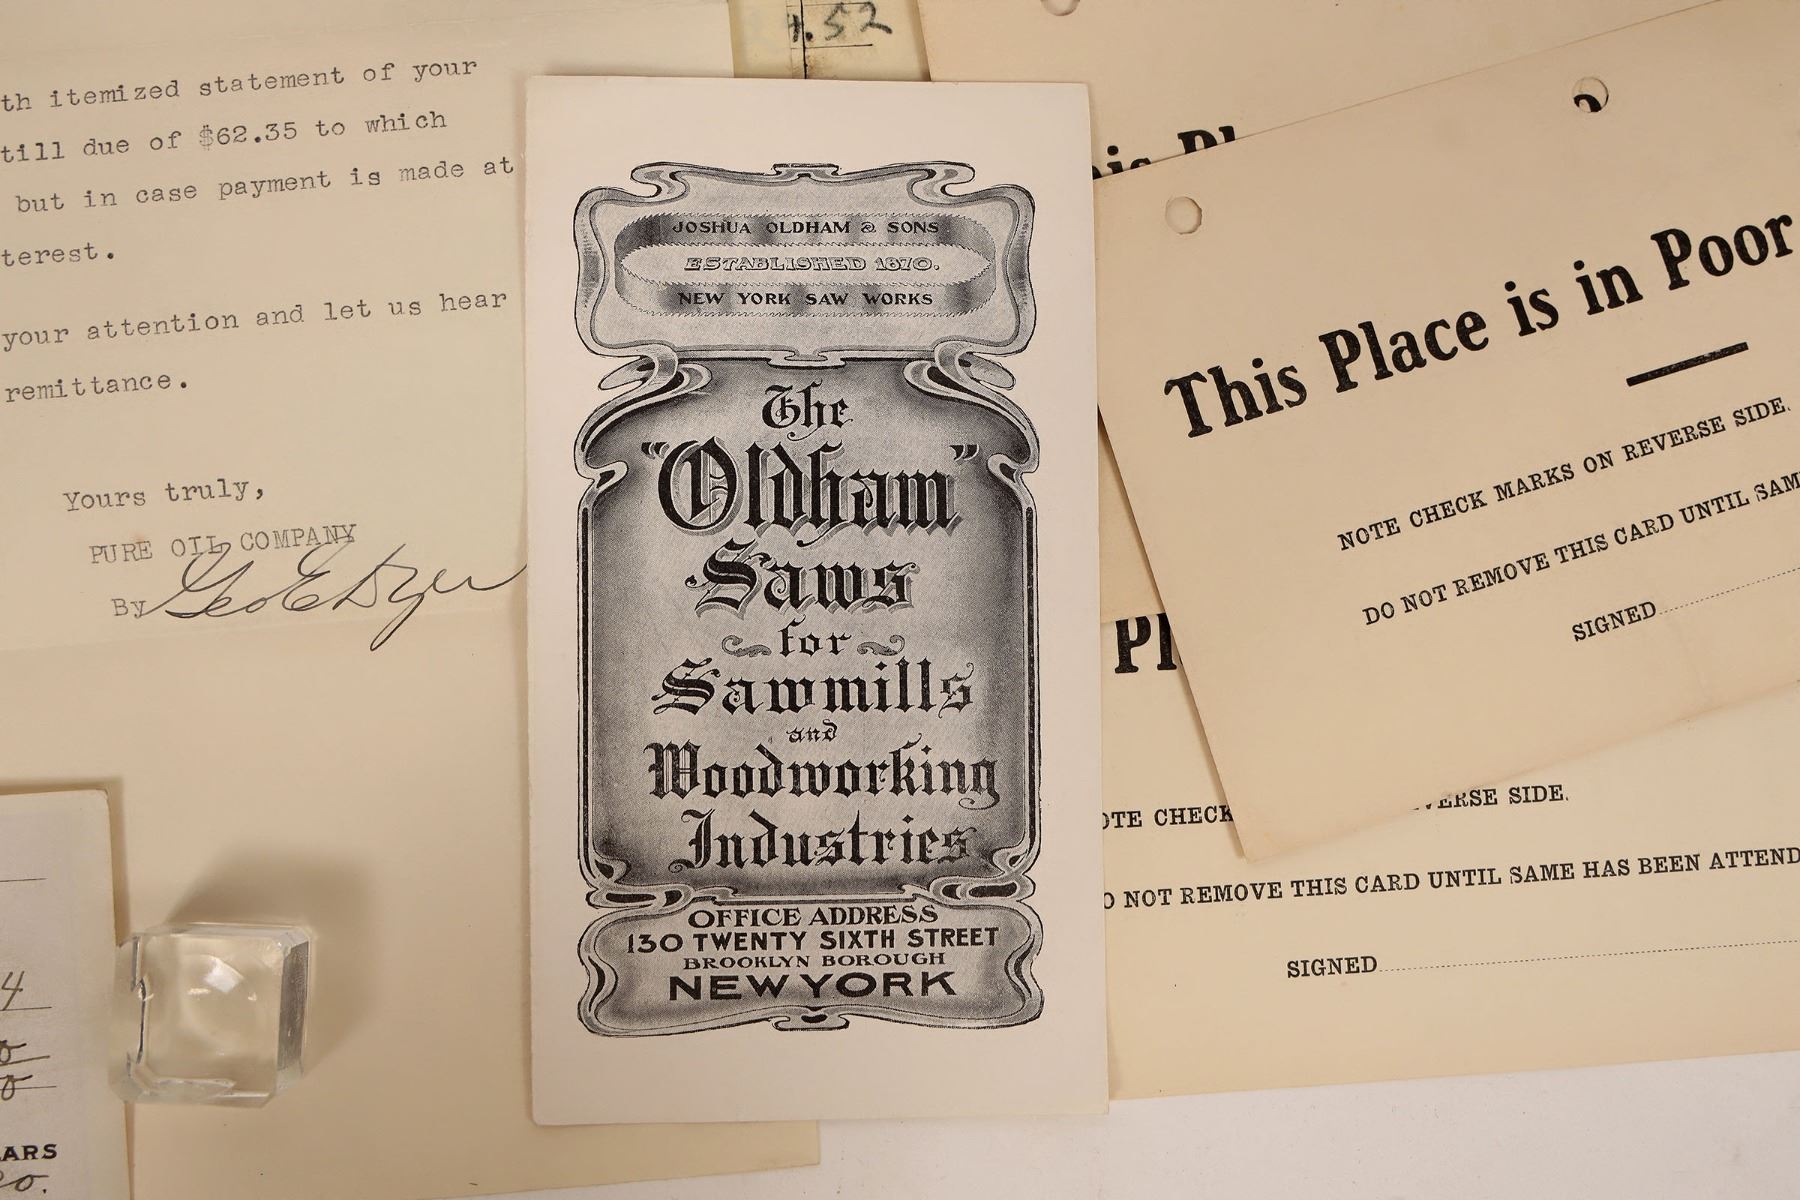 th itemized statement of your
till due of $62.35 to which
but in case payment is made at
terest.
your attention and let us hear
remittance.
Yours truly,
PURE OIL COMPANY
By Geo E Dyer
4
ARS
.52
JOSHUA OLDHAM & SONS
ESTABLISHED 1870.
NEW YORK SAW WORKS
The
"Oldham"
Saws
for
Sawmills
and
Woodworking
Industries
OFFICE ADDRESS
130 TWENTY SIXTH STREET
BROOKLYN BOROUGH
NEW YORK
This Place is in Poor
NOTE CHECK MARKS ON REVERSE SIDE.
DO NOT REMOVE THIS CARD UNTIL SAM
SIGNED
Pl
OTE CHECK VERSE SIDE.
O NOT REMOVE THIS CARD UNTIL SAME HAS BEEN ATTEND
SIGNED